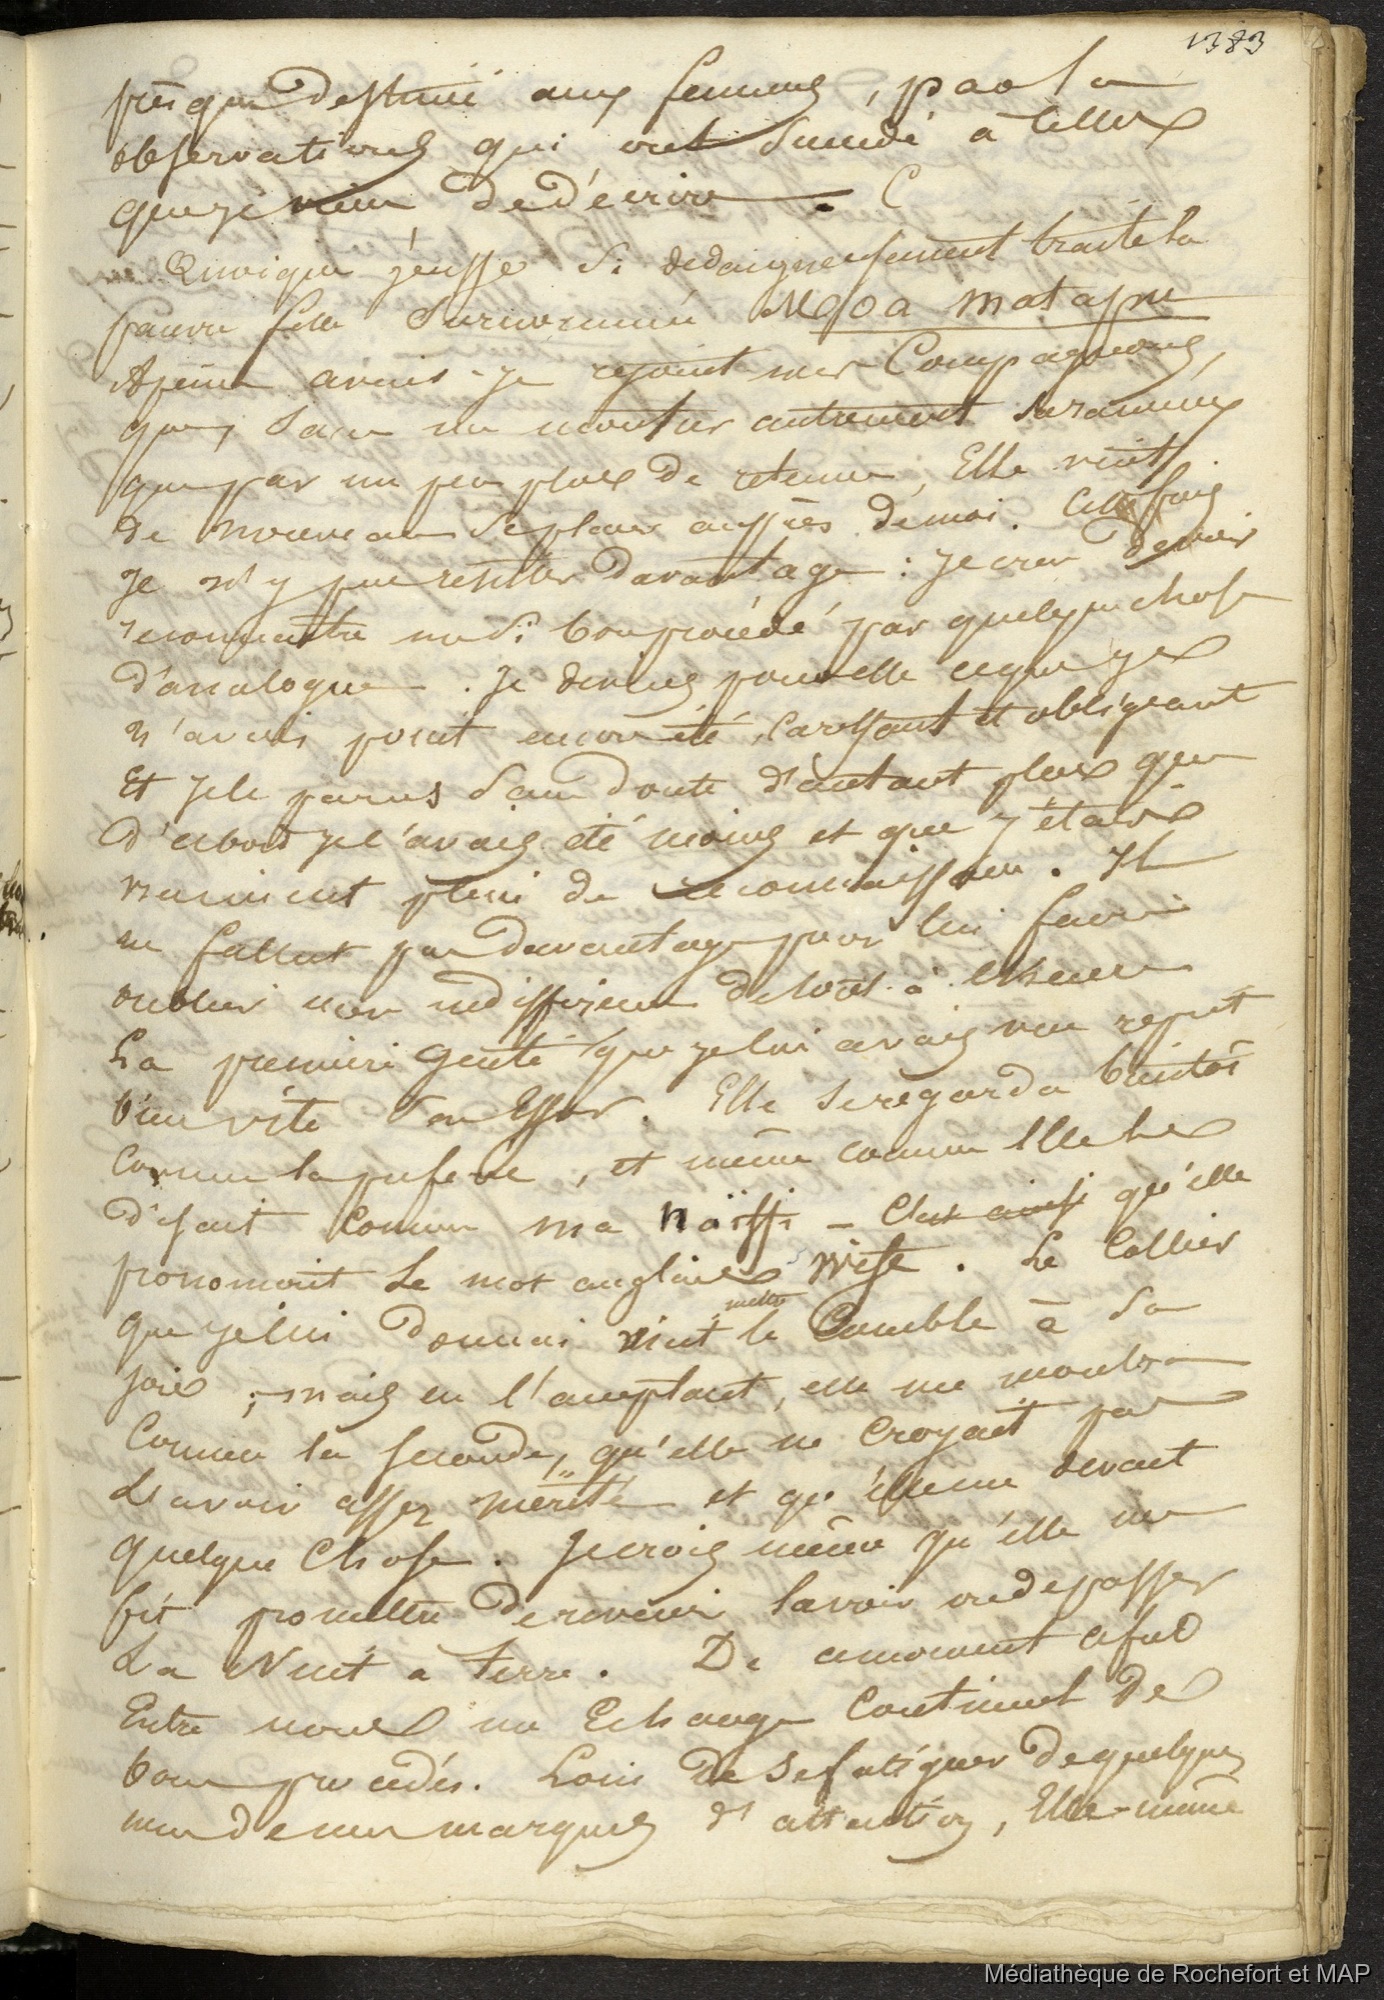 1383
presque destiné aux femmes, par les
observations qui ont succédé à celles
que je viens de décrire. C
Quoique j'eusse si dedaigneusement traité la
pauvre fille surnommée Ngoa matapou
Apeine avais-je rejoint mes Compagnons,
que, sans me montrer autrement sa rancune
que par un peu plus de retenue, Elle vint
de nouveau se placer auprès de moi. Cette fois
Je n'y pus résister davantage : Je crus devoir
reconnaitre un si bon procédé par quelque chose
d'analogue. Je devins pour elle ce que je
n'avais point encore été, caressant et obligeant
Et je le parus sans doute d'autant plus que
d'abord je l'avais été moins et que j'étais
vraiment plein de reconnaissance. Il
ne fallut pas davantage pour lui faire
oublier mon indifférence de tout-à-l'heure
La première gaité que je lui avais vue reprit
bien vite son Essor. Elle se regarda bientôt
Comme la préférée, et même comme Elle le
disait comme ma naïffi - C'est ainsi qu'elle
prononçait le mot anglais wife. Le Collier
que je lui donnai vint mettre le Comble à sa
joie ; mais en l'acceptant, elle me montra
Comme la seconde, qu'elle ne croyait pas
L'avoir assez mérité et qu'elle me devait
quelque chose. Je crois même qu'elle me
fit promettre de revenir la voir ou de passer
La Nuit à terre. De ce moment ce fut
Entre nous un Echange Continuel de
bons procédés. Loin de se fatiguer de quelques
unes de mes marques d'attention, Elle-même
Médiathèque de Rochefort et MAP